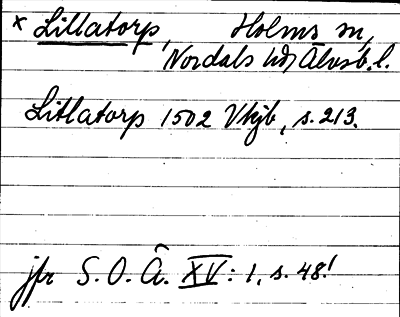 * Lillatorp, Holms sn,
Nordals hd Älvsb. l.
Litlatorp 1502 Vkjb, s. 213.
jfr S. O. Ä. XV: 1, s. 48!